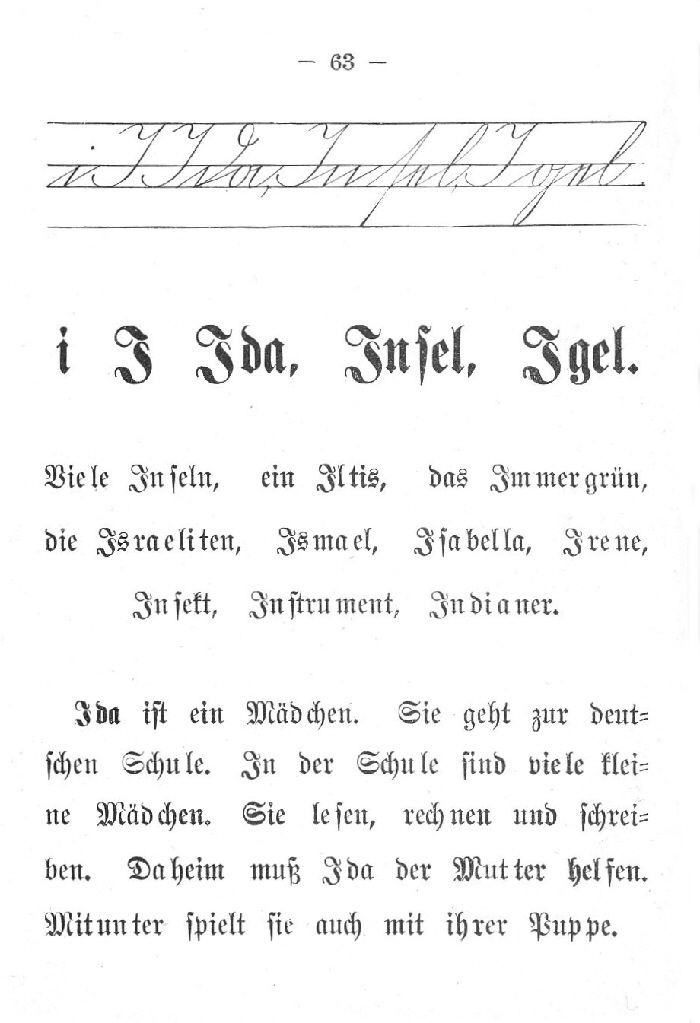 — 63 —
i I Ida, Insel, Igel.
i I Ida, Insel, Igel.
Viele Inseln, ein Iltis, das Immergrün,
die Israeliten, Ismael, Isabella, Irene,
Insekt, Instrument, Indianer.
Ida ist ein Mädchen. Sie geht zur deut-
schen Schule. In der Schule sind viele klei-
ne Mädchen. Sie lesen, rechnen und schrei-
ben. Daheim muß Ida der Mutter helfen.
Mitunter spielt sie auch mit ihrer Puppe.